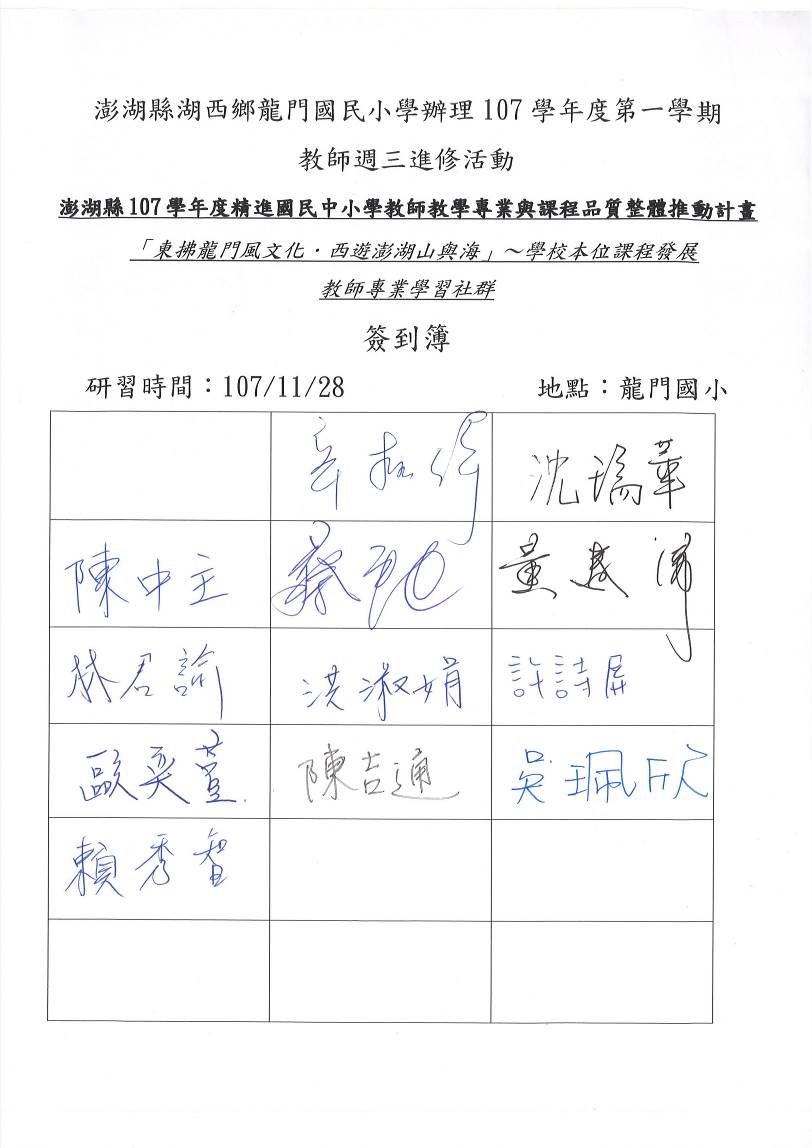 澎湖縣湖西鄉龍門國民小學辦理 107 學年度第一學期
教師週三進修活動
澎湖縣 107 學年度精進國民中小學教師教學專業與課程品質整體推動計畫
「東拂龍門風文化．西遊澎湖山與海」～學校本位課程發展
教師專業學習社群
簽到簿
研習時間：107/11/28 地點：龍門國小
沈瑞華
陳中主
林君諭 洪淑娟 許詩屏
歐奕萱 陳吉通 吳珮欣
賴秀智